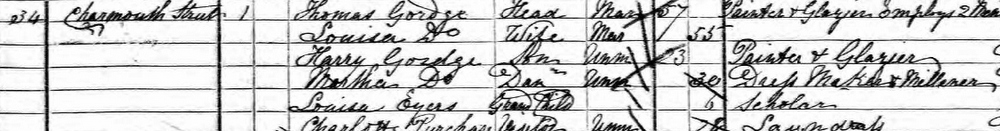 234 Charmouth Street 1 Thomas Gordge Head Mar 57 Painter & Glazier Employs 2 Men
Louisa Do Wife Mar 55
Harry Gordge Son Unm 23 Painter & Glazier
Martha Do Daur Unm 30 Dress Maker & Millener
Louisa Eyers Grand Child 6 Scholar
Charlotte Visitor Unm